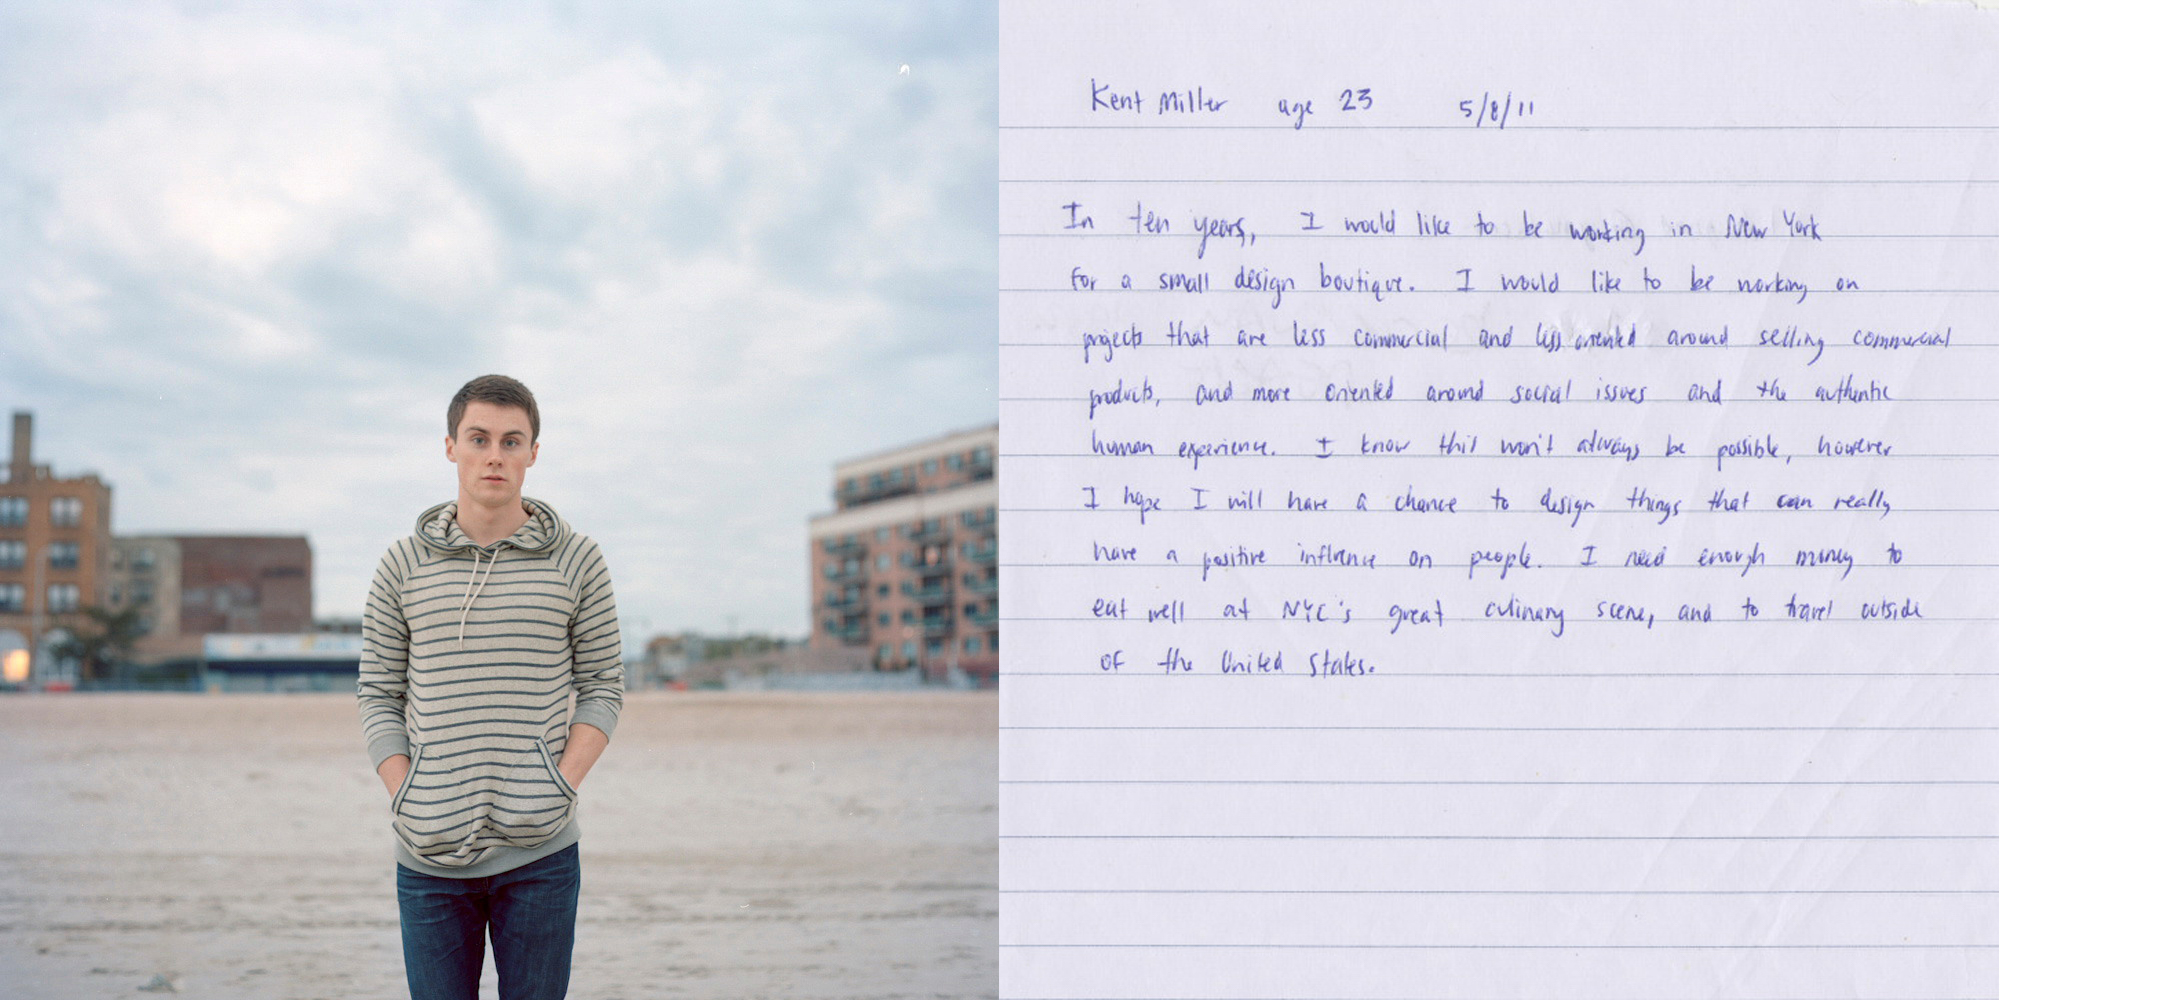 Kent Miller age 23 5/8/11
In ten years, I would like to be working in New York
for a small design boutique. I would like to be working on
projects that are less commercial and less oriented around selling commercial
products, and more oriented around social issues and the authentic
human experience. I know this won't always be possible, however
I hope I will have a chance to design things that can really
have a positive influence on people. I need enough money to
eat well at NYC's great culinary scene, and to travel outside
of the United States.